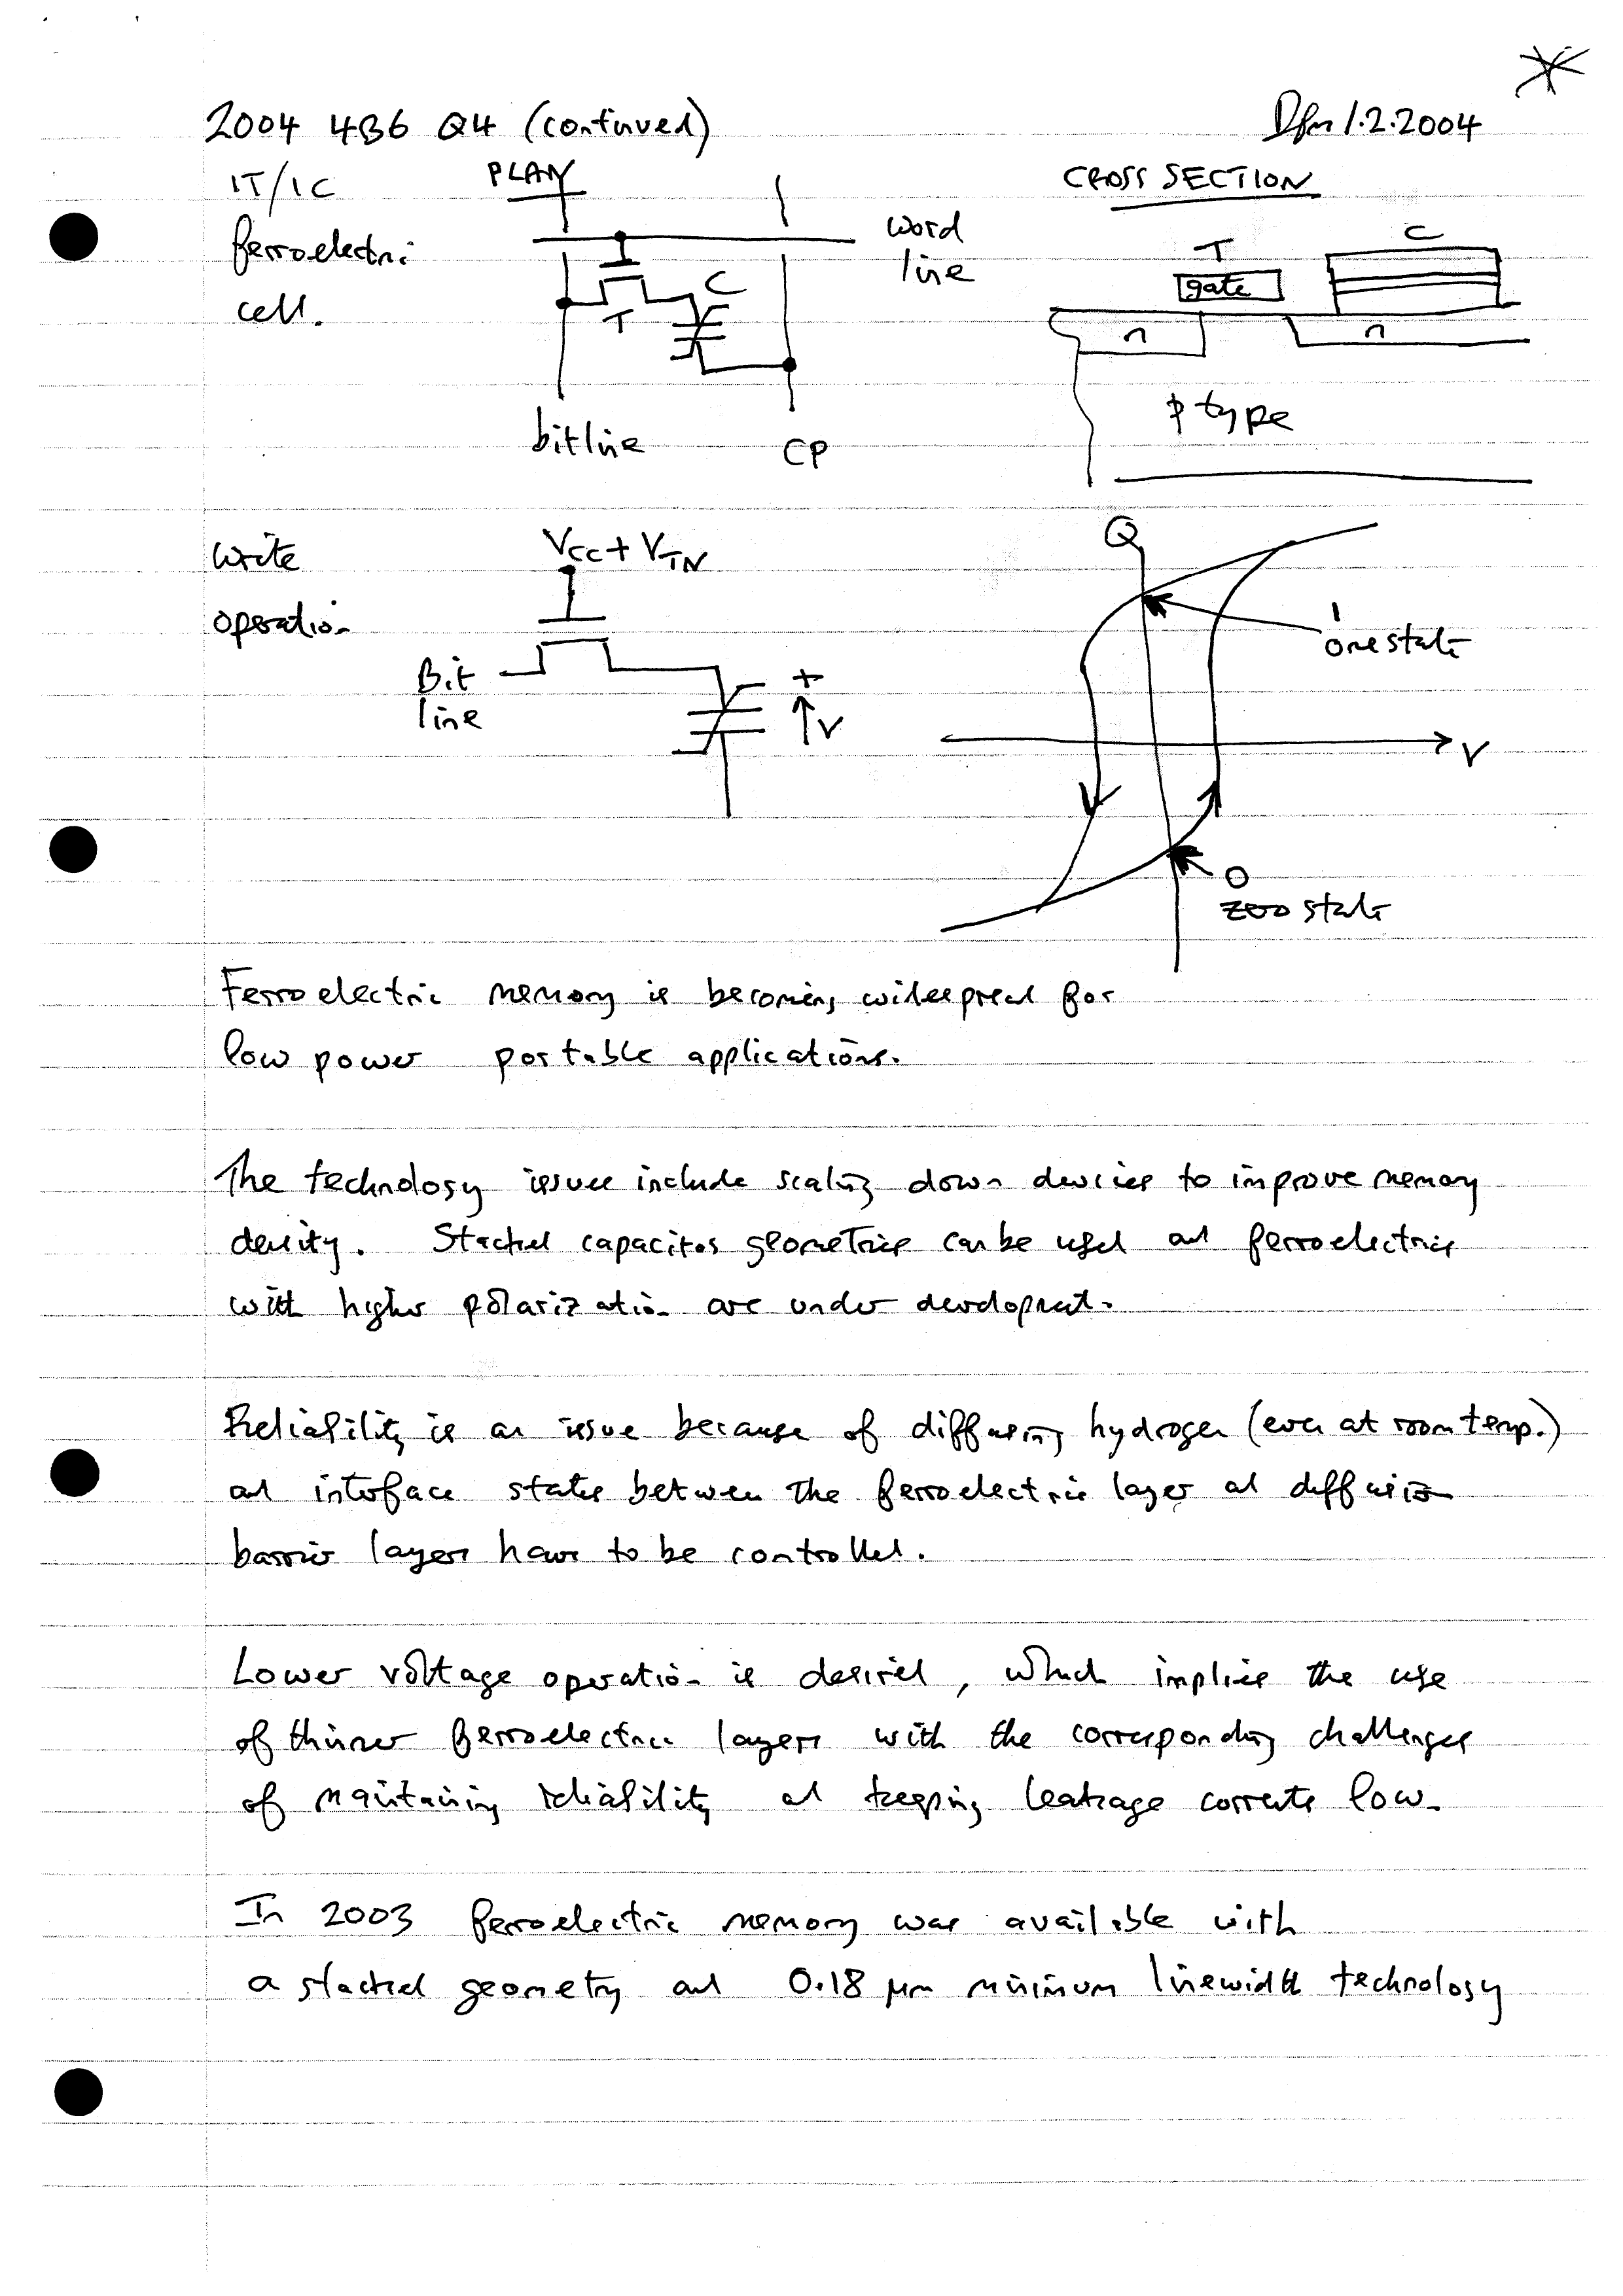 2004 4B6 Q4 (continued)
1.2.2004
1T/1C
ferroelectric
cell.
PLAN
word
line
C
T
bitline
CP
CROSS SECTION
T
C
gate
n
n
p type
Write
operation
VCC + VTN
Bit
line
+
V
Q
1
one state
V
0
zero state
Ferroelectric memory is becoming widespread for
low power portable applications.
The technology issues include scaling down devices to improve memory
density. Stacked capacitor geometries can be used and ferroelectrics
with higher polarization are under development.
Reliability is an issue because of diffusing hydrogen (even at room temp.)
and interface states between the ferroelectric layer and diffusion
barrier layers have to be controlled.
Lower voltage operation is desired, which implies the use
of thinner ferroelectric layers with the corresponding challenges
of maintaining reliability and keeping leakage currents low.
In 2003 ferroelectric memory was available with
a stacked geometry and 0.18 μm minimum linewidth technology